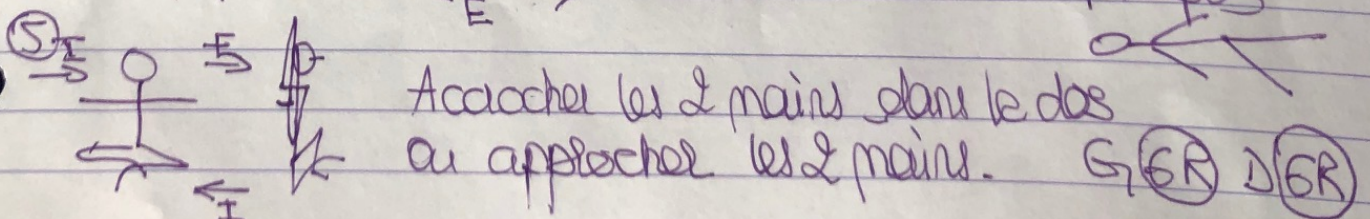 E
⑤ I E
Accrocher les 2 mains dans le dos
ou approcher les 2 mains. G 6R D 6R
I